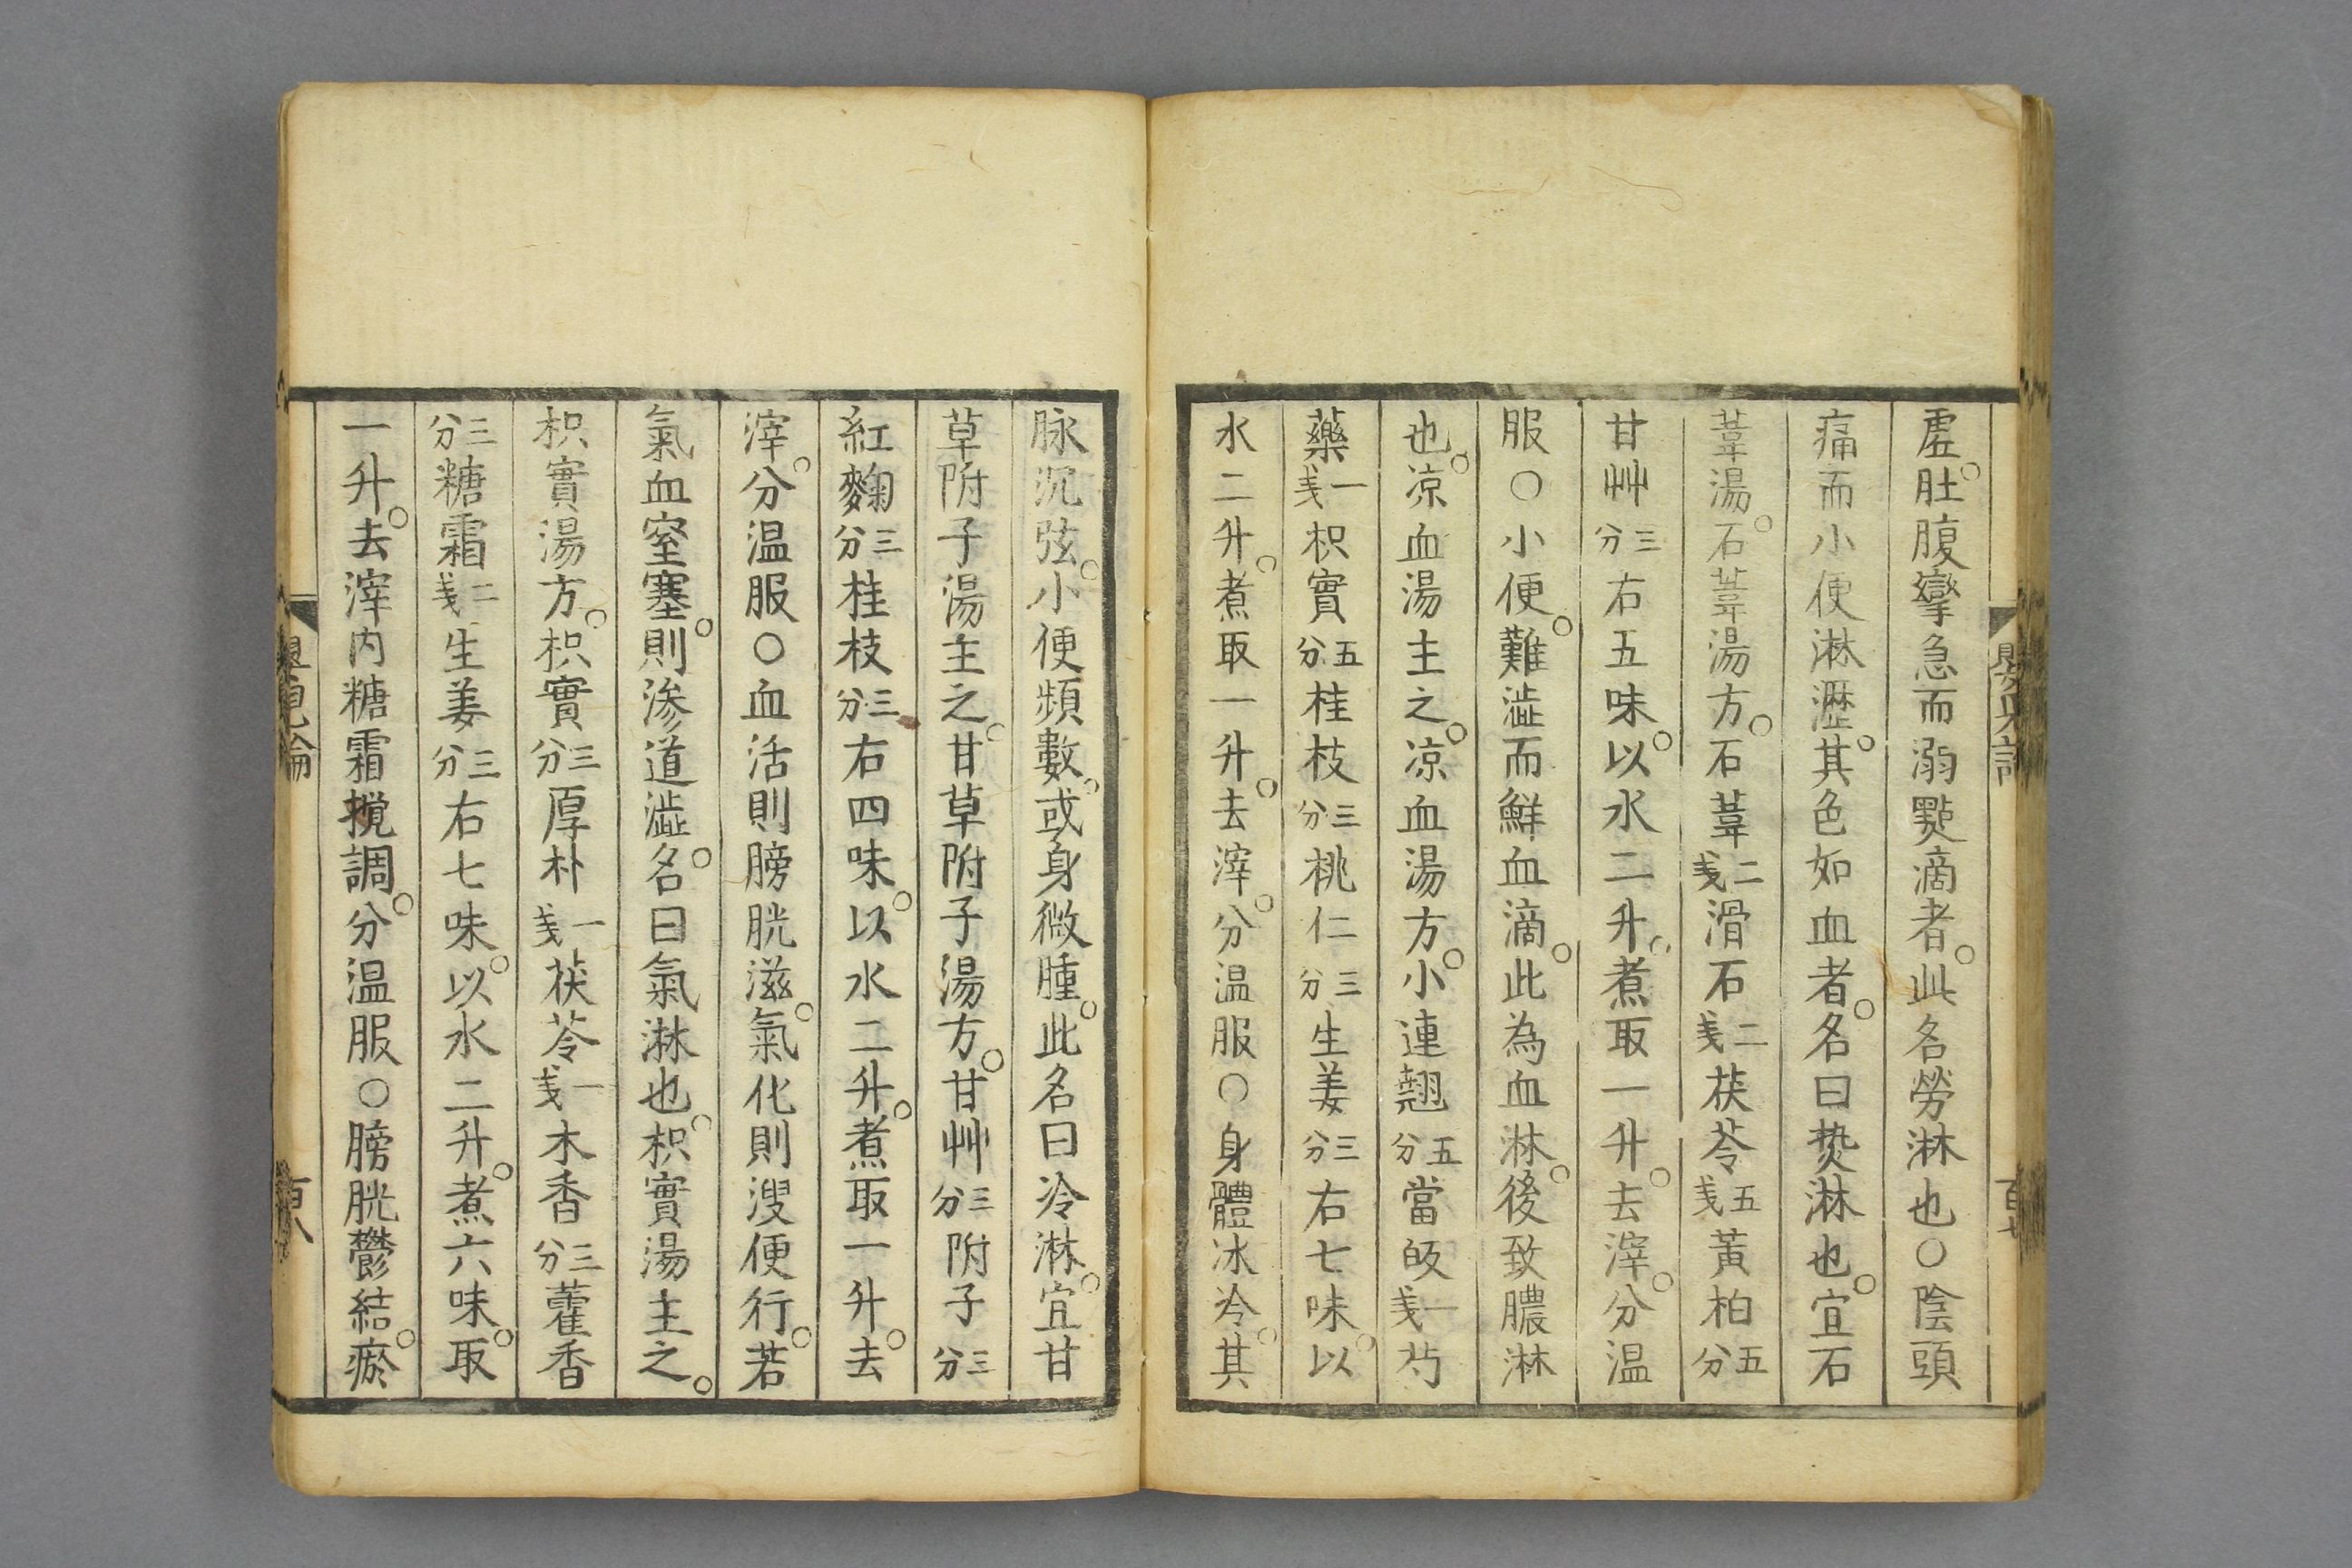 虗。肚腹攣急而溺㸃滴者。此名勞淋也○陰頭
痛而小便淋瀝。其色如血者。名曰热淋也。宜石
葦湯。石葦湯方。石葦二戔滑石二戔茯苓五戔黃柏五分
甘艸三分右五味。以水二升。煮取一升。去滓。分温
服○小便。難澁而鮮血滴。此為血淋。後致膿淋
也。凉血湯主之。凉血湯方。小連翹五分當皈一戔芍
藥一戔枳實五分桂枝三分桃仁三分生姜三分右七味。以
水二升。煮取一升。去滓。分温服○身體冰冷。其
脉沉弦。小便頻數。或身微腫。此名曰冷淋。宜甘
草附子湯主之。甘草附子湯方。甘艸三分附子三分
紅麴三分桂枝三分右四味。以水二升。煮取一升。去
滓。分温服○血活則膀胱滋。氣化則溲便行。若
氣血窒塞。則渗道澁。名曰氣淋也。枳實湯主之。
枳實湯方。枳實三分厚朴一戔茯苓一戔木香三分藿香
三分糖霜二戔生姜三分右七味。以水二升。煮六味。取
一升。去滓内糖霜攪調。分温服○膀胱鬱結。瘀